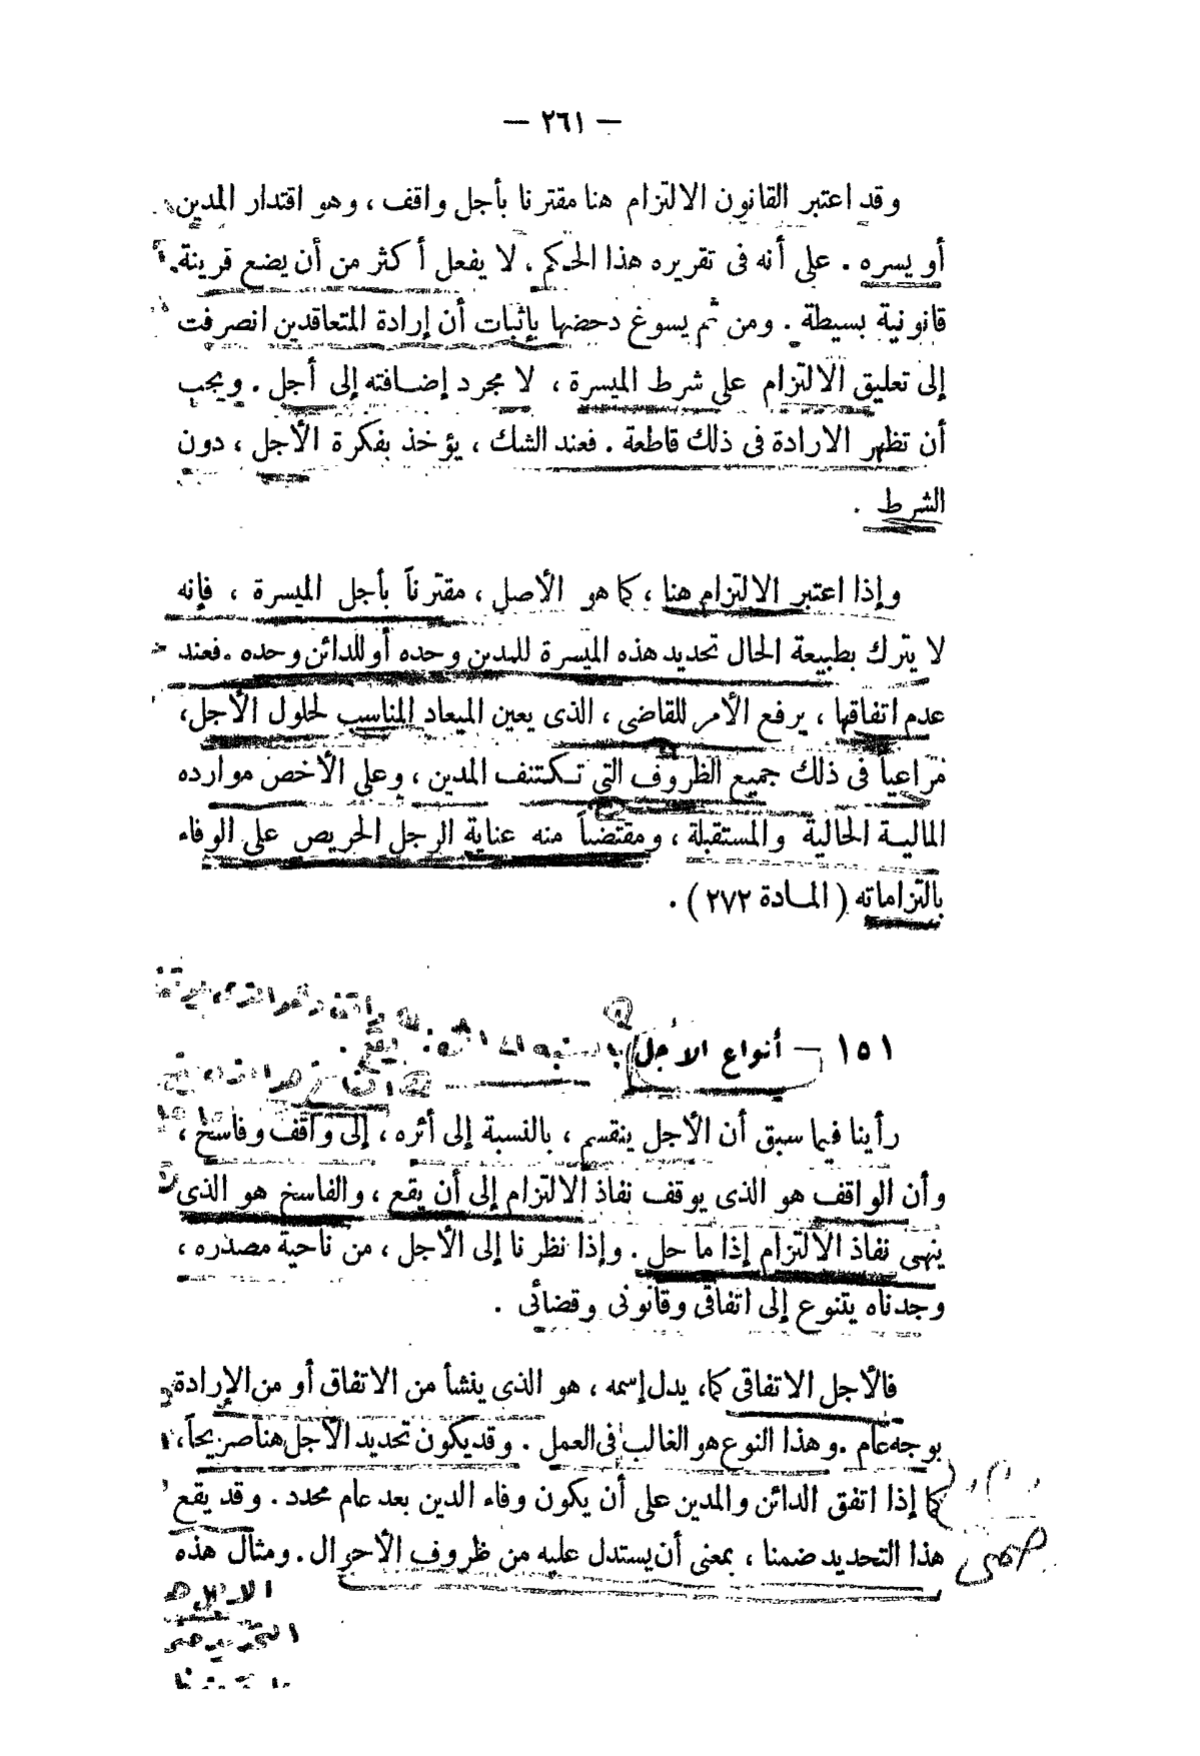 — ٢٦١ —
وقد اعتبر القانون الالتزام هنا مقترنا بأجل واقف ، وهو اقتدار المدين
أو يسره . على أنه فى تقريره هذا الحكم ، لا يفعل أكثر من أن يضع قرينة
قانونية بسيطة . ومن ثم يسوغ دحضها بإثبات أن إرادة المتعاقدين انصرفت
إلى تعليق الالتزام على شرط الميسرة ، لا مجرد إضافته إلى أجل . ويجب
أن تظهر الارادة فى ذلك قاطعة . فعند الشك ، يؤخذ بفكرة الأجل ، دون
الشرط .
وإذا اعتبر الالتزام هنا ، كما هو الأصل ، مقترناً بأجل الميسرة ، فإنه
لا يترك بطبيعة الحال تحديد هذه الميسرة للمدين وحده أو للدائن وحده . فعند
عدم اتفاقها ، يرفع الأمر للقاضى ، الذى يعين الميعاد المناسب لحلول الأجل ،
مراعياً فى ذلك جميع الظروف التى تكتنف المدين ، وعلى الأخص موارده
المالية الحالية والمستقبلة ، ومقتضياً منه عناية الرجل الحريص على الوفاء
بالتزاماته ( المادة ٢٧٢ ) .
١٥١ — أنواع الأجل
رأينا فيما سبق أن الأجل ينقسم ، بالنسبة إلى أثره ، إلى واقف وفاسخ ،
وأن الواقف هو الذى يوقف نفاذ الالتزام إلى أن يقع ، والفاسخ هو الذى
ينهى نفاذ الالتزام إذا ما حل . وإذا نظرنا إلى الأجل ، من ناحية مصدره ،
وجدناه يتنوع إلى اتفاقى وقانونى وقضائى .
فالأجل الاتفاقى كما، يدل إسمه ، هو الذى ينشأ من الاتفاق أو من الإرادة
بوجه عام . وهذا النوع هو الغالب فى العمل . وقد يكون تحديد الأجل هنا صريحاً ،
كما إذا اتفق الدائن والمدين على أن يكون وفاء الدين بعد عام محدد . وقد يقع
هذا التحديد ضمنا ، بمعنى أن يستدل عليه من ظروف الأحوال . ومثال هذه
ضمنى